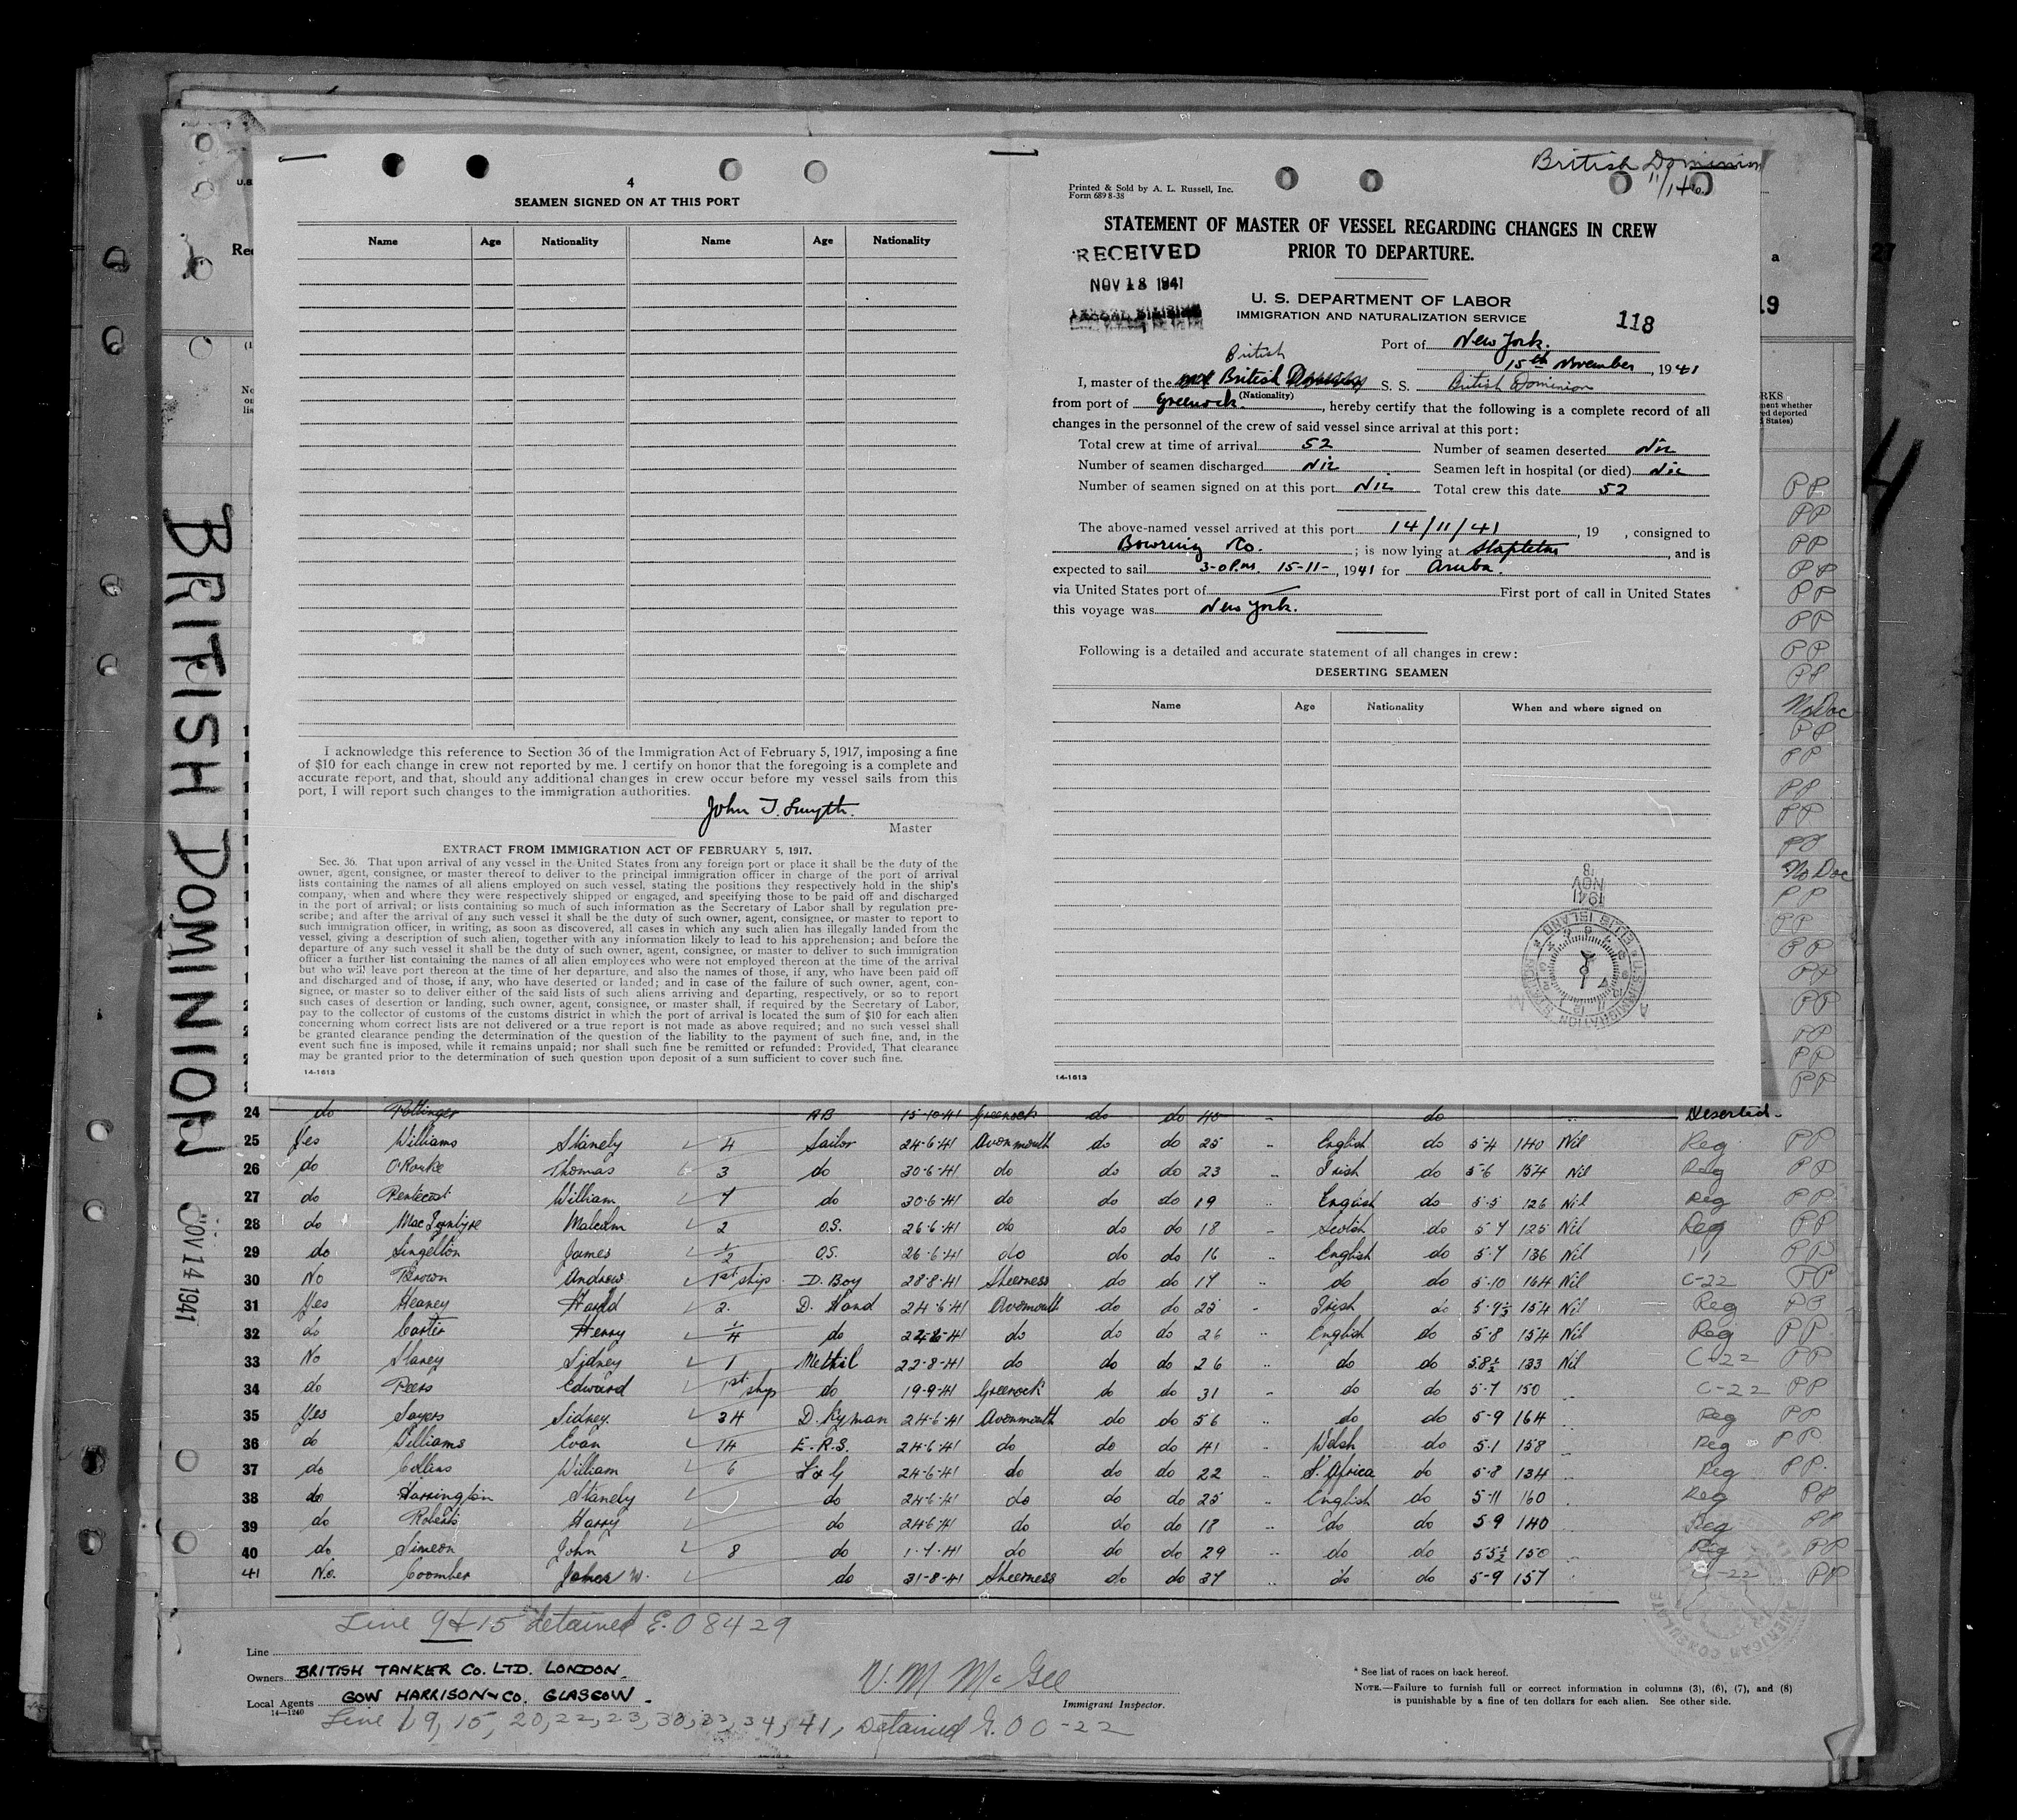 BRITISH DOMINION NOV 14 1941
4
SEAMEN SIGNED ON AT THIS PORT
Name Age Nationality Name Age Nationality
I acknowledge this reference to Section 36 of the Immigration Act of February 5, 1917, imposing a fine
of $10 for each change in crew not reported by me. I certify on honor that the foregoing is a complete and
accurate report, and that, should any additional changes in crew occur before my vessel sails from this
port, I will report such changes to the immigration authorities.
John T. Smyth.
Master
EXTRACT FROM IMMIGRATION ACT OF FEBRUARY 5, 1917.
Sec. 36. That upon arrival of any vessel in the United States from any foreign port or place it shall be the duty of the
owner, agent, consignee, or master thereof to deliver to the principal immigration officer in charge of the port of arrival
lists containing the names of all aliens employed on such vessel, stating the positions they respectively hold in the ship's
company, when and where they were respectively shipped or engaged, and specifying those to be paid off and discharged
in the port of arrival; or lists containing so much of such information as the Secretary of Labor shall by regulation pre-
scribe; and after the arrival of any such vessel it shall be the duty of such owner, agent, consignee, or master to report to
such immigration officer, in writing, as soon as discovered, all cases in which any such alien has illegally landed from the
vessel, giving a description of such alien, together with any information likely to lead to his apprehension; and before the
departure of any such vessel it shall be the duty of such owner, agent, consignee, or master to deliver to such immigration
officer a further list containing the names of all alien employees who were not employed thereon at the time of the arrival
but who will leave port thereon at the time of her departure, and also the names of those, if any, who have been paid off
and discharged and of those, if any, who have deserted or landed; and in case of the failure of such owner, agent, con-
signee, or master so to deliver either of the said lists of such aliens arriving and departing, respectively, or so to report
such cases of desertion or landing, such owner, agent, consignee, or master shall, if required by the Secretary of Labor,
pay to the collector of customs of the customs district in which the port of arrival is located the sum of $10 for each alien
concerning whom correct lists are not delivered or a true report is not made as above required; and no such vessel shall
be granted clearance pending the determination of the question of the liability to the payment of such fine, and, in the
event such fine is imposed, while it remains unpaid; nor shall such fine be remitted or refunded: Provided, That clearance
may be granted prior to the determination of such question upon deposit of a sum sufficient to cover such fine.
14-1613
British Dominion
Printed & Sold by A. L. Russell, Inc.
Form 689 8-38
STATEMENT OF MASTER OF VESSEL REGARDING CHANGES IN CREW
PRIOR TO DEPARTURE.
RECEIVED
NOV 18 1941
U. S. DEPARTMENT OF LABOR
IMMIGRATION AND NATURALIZATION SERVICE
118
Port of New York.
15th November, 1941
British
I, master of the British S. S. British Dominion
(Nationality)
from port of Greenock. , hereby certify that the following is a complete record of all
changes in the personnel of the crew of said vessel since arrival at this port:
Total crew at time of arrival 52 Number of seamen deserted Nil
Number of seamen discharged Nil Seamen left in hospital (or died) Nil
Number of seamen signed on at this port Nil Total crew this date 52
The above-named vessel arrived at this port 14/11/41 , 19 , consigned to
Bowring & Co. ; is now lying at Stapleton , and is
expected to sail 3-0 P.m. 15-11- , 1941 for Aruba.
via United States port of — First port of call in United States
this voyage was New York.
Following is a detailed and accurate statement of all changes in crew:
DESERTING SEAMEN
Name Age Nationality When and where signed on
1941
NOV
18
14-1613
24 do Pottinger AB 15-10-41 Greenock do do 40 do Deserted
25 Yes Williams Stanely 4 Sailor 24-6-41 Avonmouth do do 25 English do 5-4 140 Nil Reg PP
26 do O'Rourke Thomas 3 do 30-6-41 do do do 23 Irish do 5-6 154 Nil Reg PP
27 do Pentecost William 7 do 30-6-41 do do do 19 English do 5-5 126 Nil Reg PP
28 do Malcolm 2 O.S. 26-6-41 do do do 18 Scotish do 5-7 125 Nil Reg PP
29 do Singelton James 1/2 O.S. 26-6-41 do do do 16 English do 5-7 136 Nil 11 PP
30 No Brown Andrew 1st ship D. Boy 28-8-41 Sheerness do do 17 do do 5-10 164 Nil C-22 PP
31 Yes Heaney Harold 2. D. Hand 24-6-41 Avonmouth do do 25 Irish do 5-9½ 154 Nil Reg PP
32 do Carter Henry 1/4 do do do do 26 English do 5-8 154 Nil Reg PP
33 No Slaney Sidney 1 22-8-41 do do do 26 do do 5-8½ 133 Nil C-22 PP
34 do Peers Edward 1st ship do 19-9-41 Greenock do do 31 do do 5-7 150 C-22 PP
35 Yes Sayers Sidney 34 D. Kyman 24-6-41 Avonmouth do do 56 do do 5-9 164 Reg PP
36 do Williams Evan 14 E.R.S. 24-6-41 do do do 41 Welsh do 5-1 158 Reg PP
37 do Collins William 6 F & G 24-6-41 do do do 22 S. Africa do 5-8 134 Reg PP
38 do Harrington Stanely do 24-6-41 do do do 25 English do 5-11 160 Reg PP
39 do Roberts Harry do 24-6-41 do do do 18 do do 5-9 140 Reg PP
40 do Simeon John 8 do 1-7-41 do do do 29 do do 5-5½ 150 Reg PP
41 No. Coomber James W. do 31-8-41 Sheerness do do 37 do do 5-9 157 C-22 PP
Line 9 & 15 detained E.O 8429
Line
Owners BRITISH TANKER CO. LTD. LONDON.
Local Agents GOW HARRISON & CO. GLASGOW.
14-1240
V. M. McGee
Immigrant Inspector.
* See list of races on back hereof.
NOTE.—Failure to furnish full or correct information in columns (3), (6), (7), and (8)
is punishable by a fine of ten dollars for each alien. See other side.
Line 1, 9, 15, 20, 22, 23, 30, 33, 34, 41, Detained G.O C-22